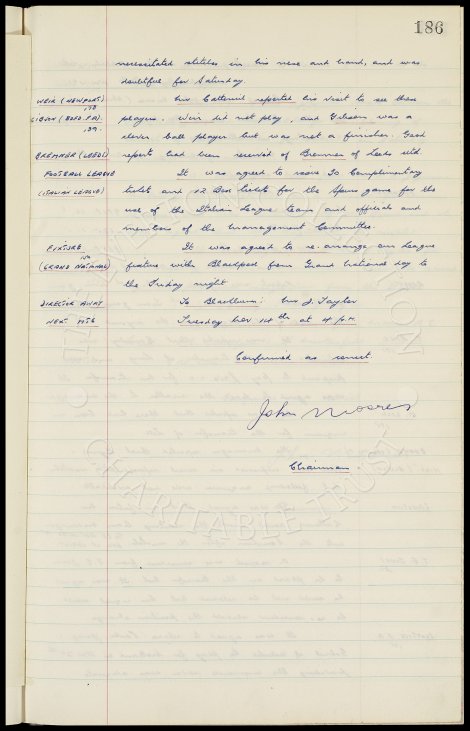 186
necessitated stitches in his nose and hand, and was
doubtful for Saturday.
WEIR (NEWPORT) Mr Catterick reported his visit to see these
players. Weir did not play, and Gibson was a
clever ball player but was not a finisher. Good
BREMNER (LEEDS) reports had been received of Bremner of Leeds Utd.
FOOTBALL LEAGUE It was agreed to issue 30 Complimentary
(ITALIAN LEAGUE) tickets and 12 Box tickets for the Spurs game for the
use of the Italian League team and officials and
members of the Management Committee.
FIXTURE It was agreed to re-arrange our League
(GRAND NATIONAL) fixture with Blackpool from Grand National day to
the Friday night
DIRECTOR AWAY To Blackburn: Mr J. Taylor
NEXT MTG Tuesday Nov 14th at 4 p.m.
Confirmed as correct
John Moores
Chairman.
CHARITABLE TRUST